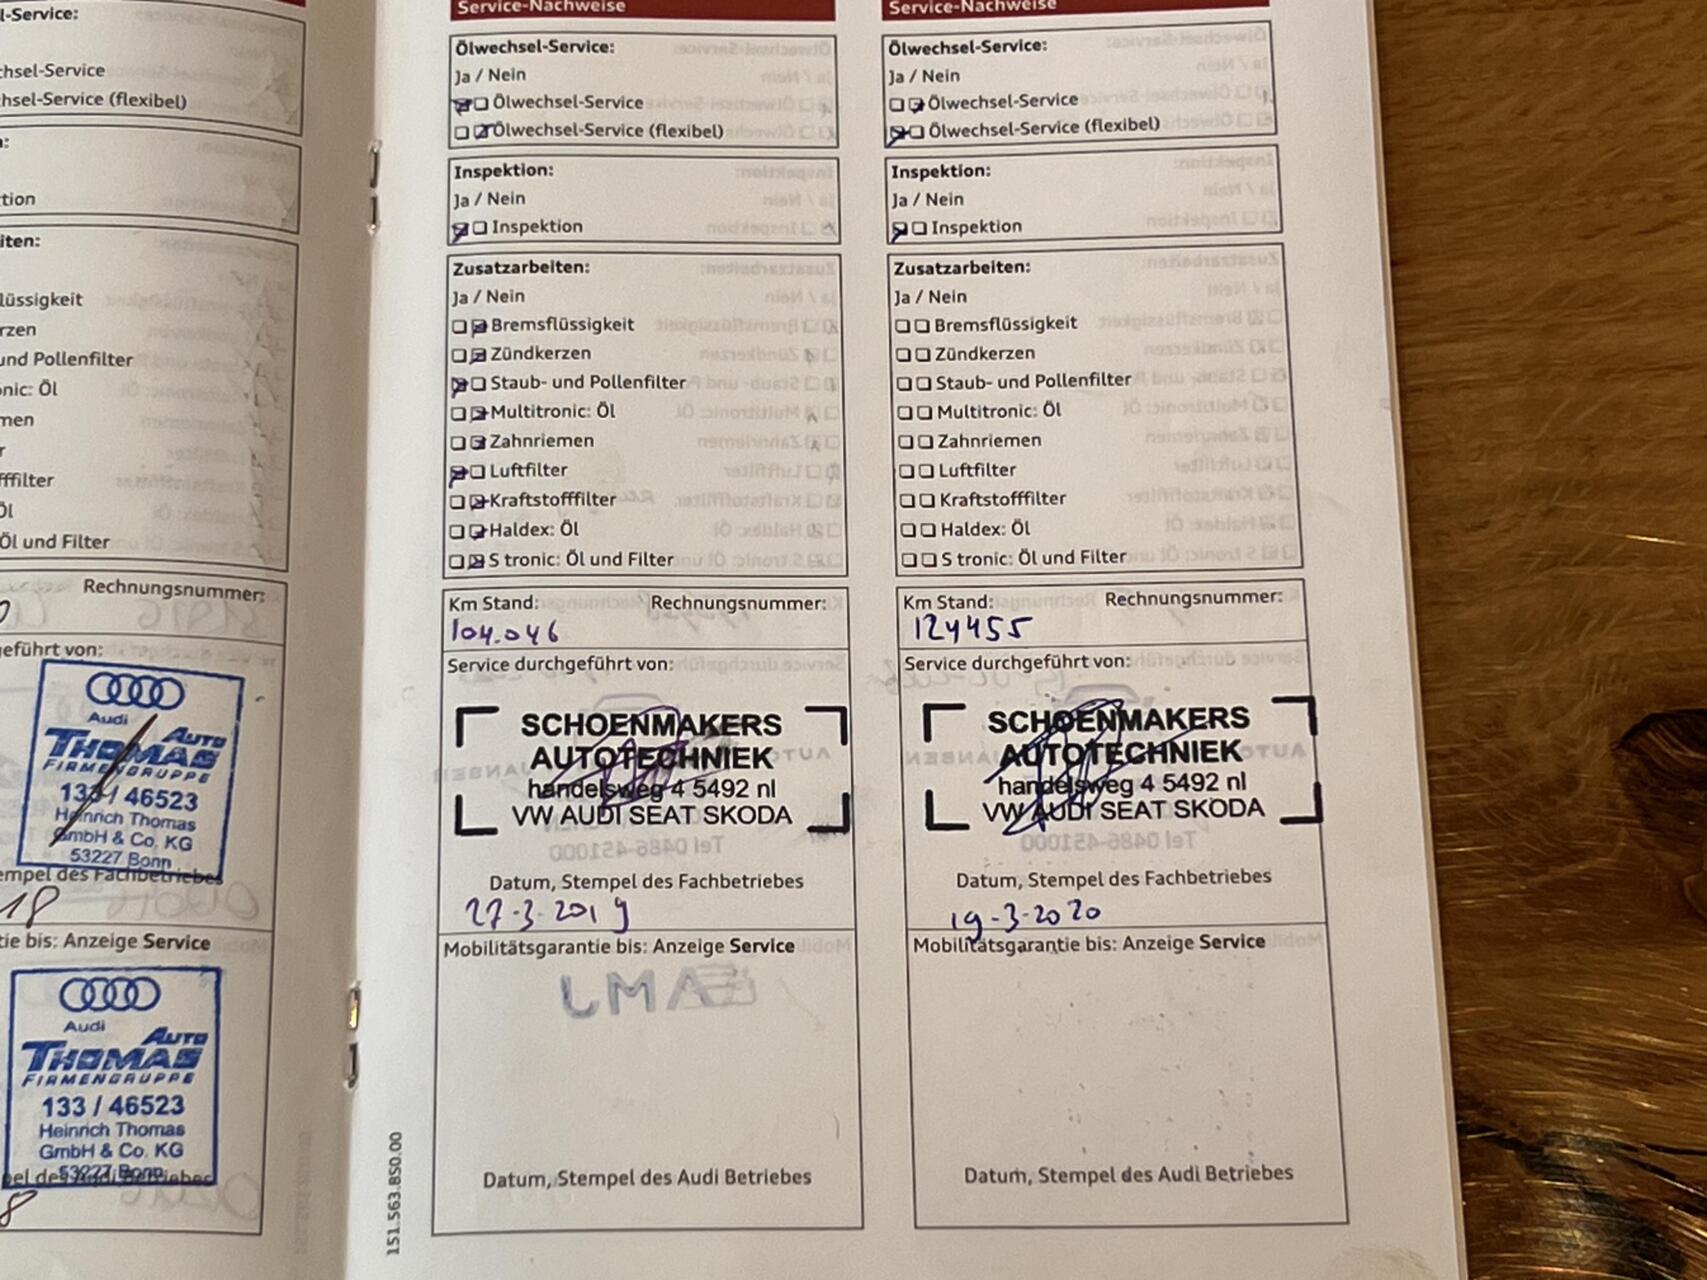 l-Service:
hsel-Service
hsel-Service (flexibel)
tion
iten:
lüssigkeit
rzen
und Pollenfilter
onic: Öl
men
r
fffilter
Öl
Öl und Filter
Rechnungsnummer:
geführt von:
Audi
AUTO
THOMAS
FIRMENGRUPPE
133 / 46523
Heinrich Thomas
GmbH & Co. KG
53227 Bonn
empel des Fachbetriebes
18
tie bis: Anzeige Service
Audi
AUTO
THOMAS
FIRMENGRUPPE
133 / 46523
Heinrich Thomas
GmbH & Co. KG
53227 Bonn
pel des Audi Betriebes
8
Service-Nachweise
Ölwechsel-Service:
Ja / Nein
Ölwechsel-Service
Ölwechsel-Service (flexibel)
Inspektion:
Ja / Nein
Inspektion
Zusatzarbeiten:
Ja / Nein
Bremsflüssigkeit
Zündkerzen
Staub- und Pollenfilter
Multitronic: Öl
Zahnriemen
Luftfilter
Kraftstofffilter
Haldex: Öl
S tronic: Öl und Filter
Km Stand: Rechnungsnummer:
104.046
Service durchgeführt von:
SCHOENMAKERS
AUTOTECHNIEK
handelsweg 4 5492 nl
VW AUDI SEAT SKODA
Datum, Stempel des Fachbetriebes
27-3-2019
Mobilitätsgarantie bis: Anzeige Service
Datum, Stempel des Audi Betriebes
151.563.8S0.00
Service-Nachweise
Ölwechsel-Service:
Ja / Nein
Ölwechsel-Service
Ölwechsel-Service (flexibel)
Inspektion:
Ja / Nein
Inspektion
Zusatzarbeiten:
Ja / Nein
Bremsflüssigkeit
Zündkerzen
Staub- und Pollenfilter
Multitronic: Öl
Zahnriemen
Luftfilter
Kraftstofffilter
Haldex: Öl
S tronic: Öl und Filter
Km Stand: Rechnungsnummer:
124455
Service durchgeführt von:
SCHOENMAKERS
AUTOTECHNIEK
handelsweg 4 5492 nl
VW AUDI SEAT SKODA
Datum, Stempel des Fachbetriebes
19-3-2020
Mobilitätsgarantie bis: Anzeige Service
Datum, Stempel des Audi Betriebes